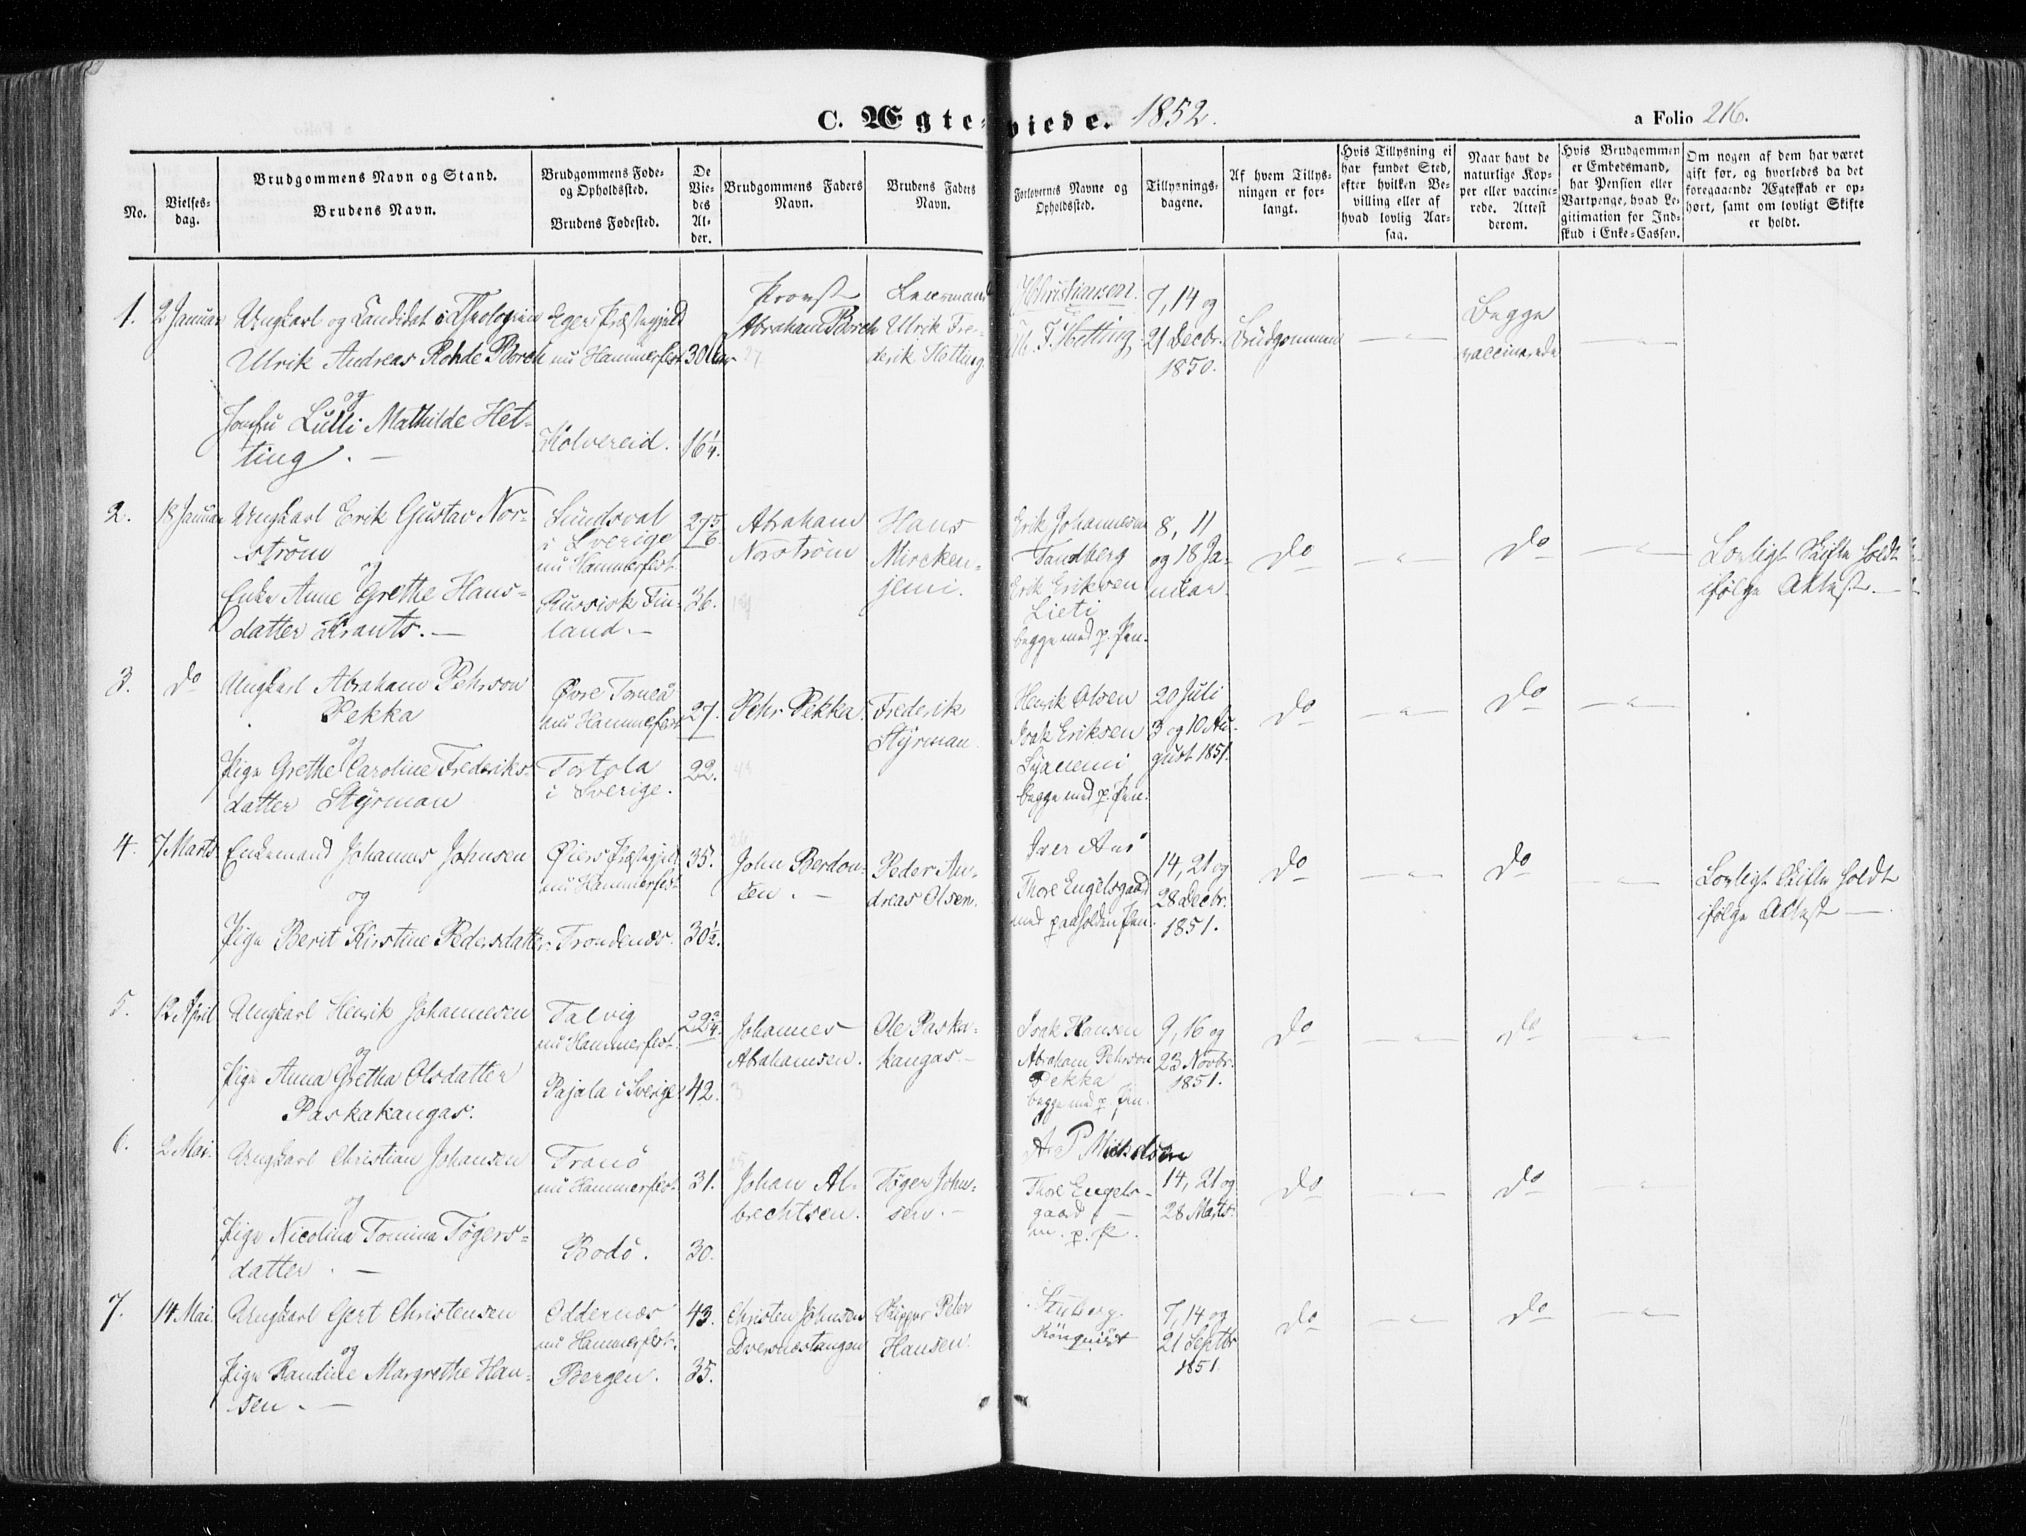 C. Ægte-viede. 1852.
a Folio 216.
No.
Vielses-
dag.
Brudgommens Navn og Stand.
Brudens Navn.
Brudgommens Føde-
og Opholdssted.
Brudens Fødested.
De
Vie-
des
Al-
der.
Brudgommens Faders
Navn.
Brudens Faders
Navn.
Forlovernes Navne og
Opholdssted.
Tillysnings-
dagene.
Af hvem Tillys-
ningen er for-
langt.
Hvis Tillysning ei
har fundet Sted,
efter hvilken Be-
villing eller af
hvad lovlig Aar-
sag.
Naar havt de
naturlige Kop-
per eller vaccine-
rede. Attest
derom.
Hvis Brudgommen
er Embedsmand,
har Pension eller
Vartpenge, hvad Le-
gitimation for Ind-
skud i Enke-Cassen.
Om nogen af dem har været
gift før, og hvorledes da det
foregaaende Ægteskab er op-
hørt, samt om lovligt Skifte
er holdt.
1. 2 Januar
Ungkarl og Candidat i Theologien
Ulrik Andreas Rohde Borch
og
Jomfru Lulli Mathilde Het-
ting. —
Eger Præstegjeld
nu Hammerfest
Kolvereid.
30 Aar
16 1/4.
Provst
Abraham Borch
Lensmand
Ulrik Fre-
derik Hetting.
Christiansen.
F. Hetting
7, 14 og
21 Decbr.
1850.
Brudgommen
— " —
Begge
vaccinerede
— " —
2. 18 Januar
Ungkarl Erik Gustav Nor-
strøm
og
Enke Anne Grethe Hans-
datter Krants. —
Sundsval
i Sverige
nu Hammerfest
Russisk Fin-
land. —
27 5/6.
36.
Abraham
Norstrøm
Hans
Mircken-
jemi.
Erik Johannesen
Sandberg
Erik Eriksen
Lieti
begge med p. Pen.
8, 11
og 18 Ja-
nuar
Do
— " —
Do
— " —
Lovligt Skifte holdt
ifølge Attest. —
3. Do
Ungkarl Abraham Pehrson
Pekka
og
Pige Grethe Caroline Frederiks-
datter Styrman
Øvre Torneå
nu Hammerfest
Tortola
i Sverige.
27.
22.
Pehr Pekka.
Frederik
Styrman.
Henrik Olsen
Isak Eriksen
begge med p. Pen.
20 Juli
3 og 10 Au-
gust 1851.
Do
— " —
Do
— " —
4. 7 Marts.
Enkemand Johannes Johnsen
og
Pige Berit Kirstine Pedersdatter.
Øiers Præstegjeld
nu Hammerfest
Trondenæs.
35.
30 1/2.
John Berdon-
sen. —
Peder An-
dreas Olsen.
Iver Aas
Thore Engelsgaard
med paaholden Pen.
14, 21 og
28 Decbr.
1851.
Do
— " —
Do
— " —
Lovligt Skifte holdt
ifølge Attest —
5. 12 April
Ungkarl Henrik Johannesen
og
Pige Anna Gretha Olsdatter
Paskakangas.
Talvig
nu Hammerfest.
Pajala i Sverige
22 3/4.
42.
Johannes
Abrahamsen.
Ole Paska-
kangas —
Isak Hansen
Abraham Pehrson
Pekka
begge med p. Pen.
9, 16 og
23 Novbr.
1851.
Do
— " —
Do
— " —
6. 2 Mai.
Ungkarl Christian Johansen
og
Pige Nicolina Tomina Tøgers-
datter. —
Tranö
nu Hammerfest.
Bodö.
31.
30.
Johan Al-
brechtsen.
Tøger John-
sen. —
Thore Engels-
gaard —
m. p. P.
14, 21 og
28 Marts.
Do
— " —
Do
— " —
7. 14 Mai.
Ungkarl Gert Christensen
og
Pige Randine Margrethe Han-
sen. —
Oddernæs
nu Hammerfest.
Bergen.
43.
35.
Christen Johnsen
Dversnæstangen
Peter
Hansen.
Rönquist
7, 14 og
21 Septbr
1851.
Do
— " —
Do
— " —